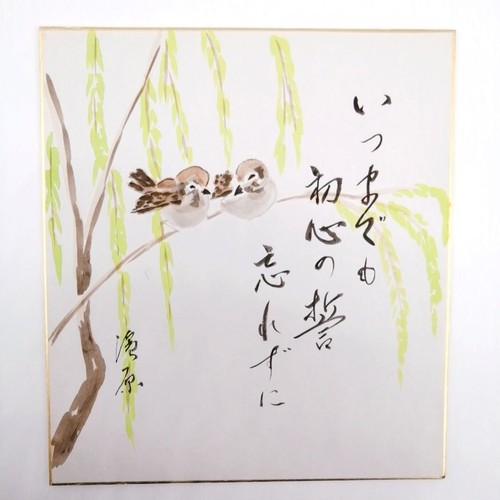 いつまでも
初心の誓
忘れずに
濱原